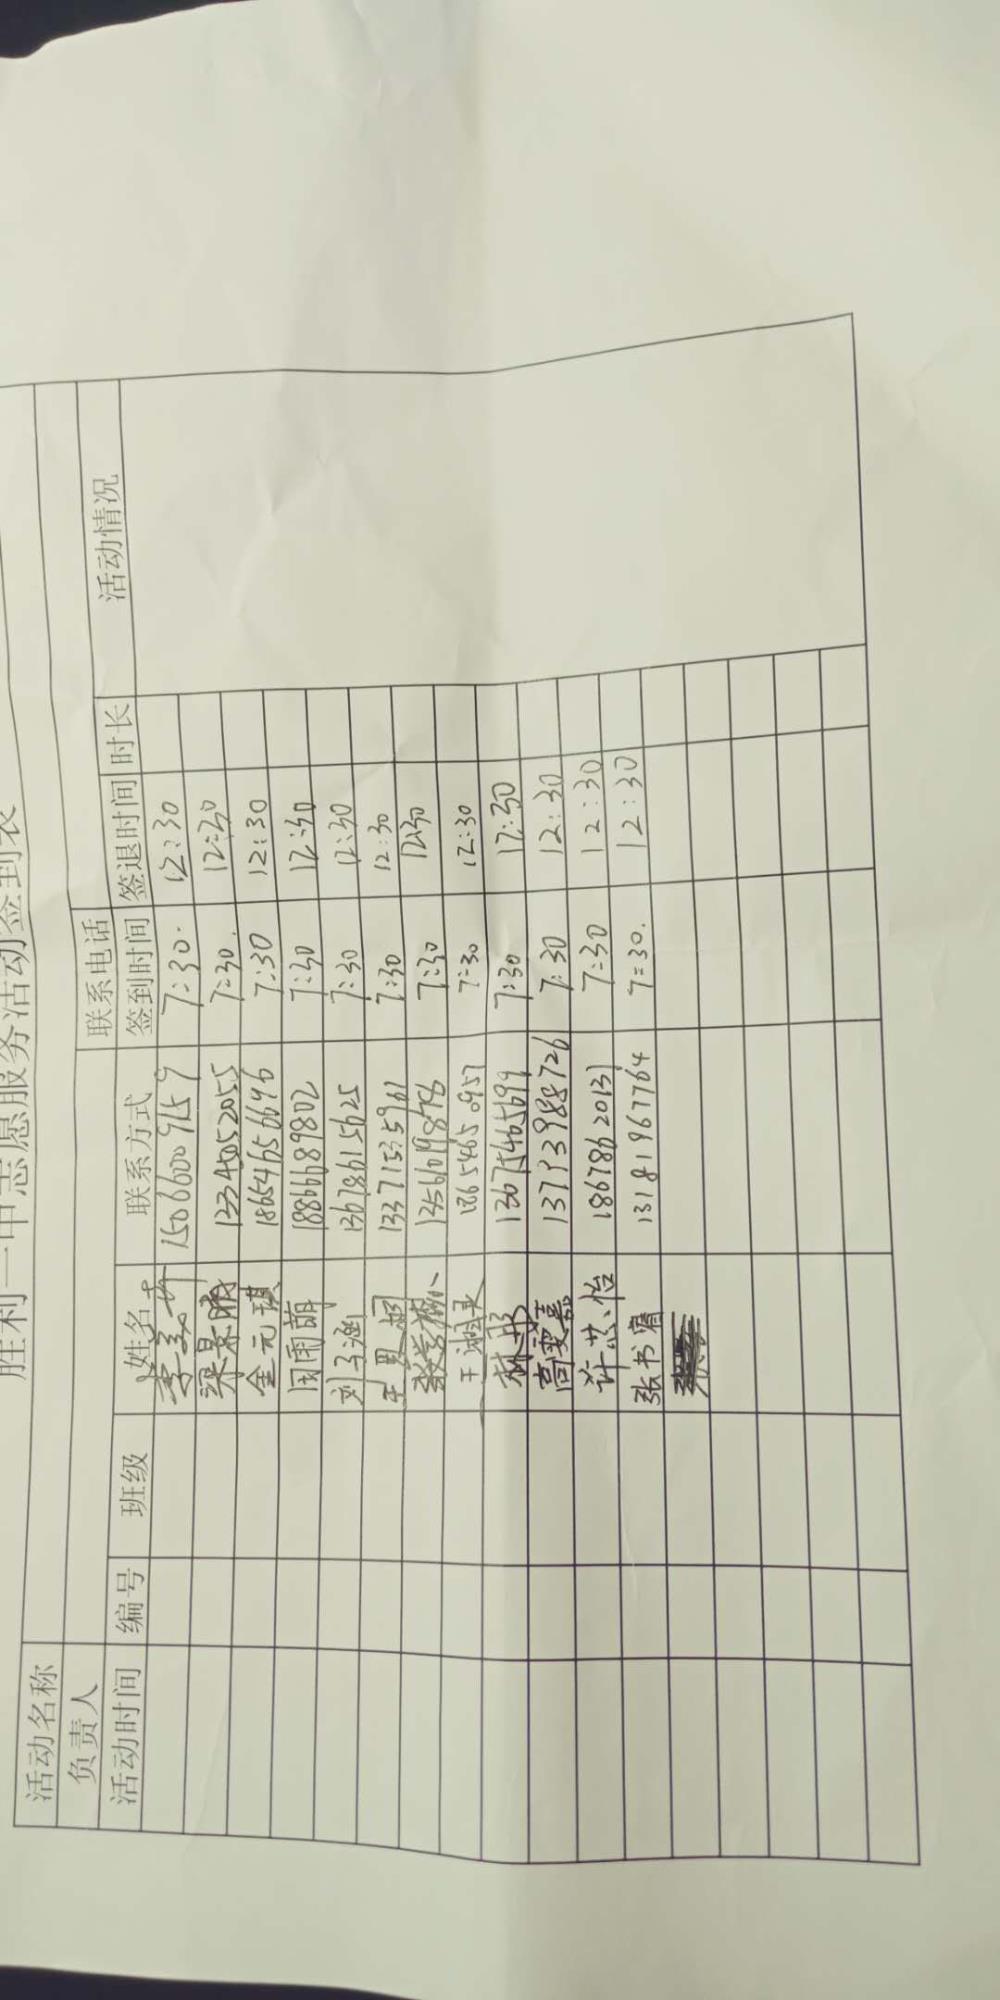 胜利一中志愿服务活动签到表
活动名称
负责人 联系电话
活动时间 编号 班级 姓名 联系方式 签到时间 签退时间 时长 活动情况
15066009159 7:30. 12:30
13345052055 7:30. 12:30
金元琪 18654656696 7:30 12:30
周雨萌 18866689802 7:30 12:30
刘子涵 13678615625 7:30 12:30
13371535961 7:30 12:30
7:30 12:30
7:30 12:30
林彤 13675465699 7:30 12:30
高安嘉 13793988726 7:30 12:30
许芸怡 18678620131 7:30 12:30
张书睿 13181967764 7:30. 12:30